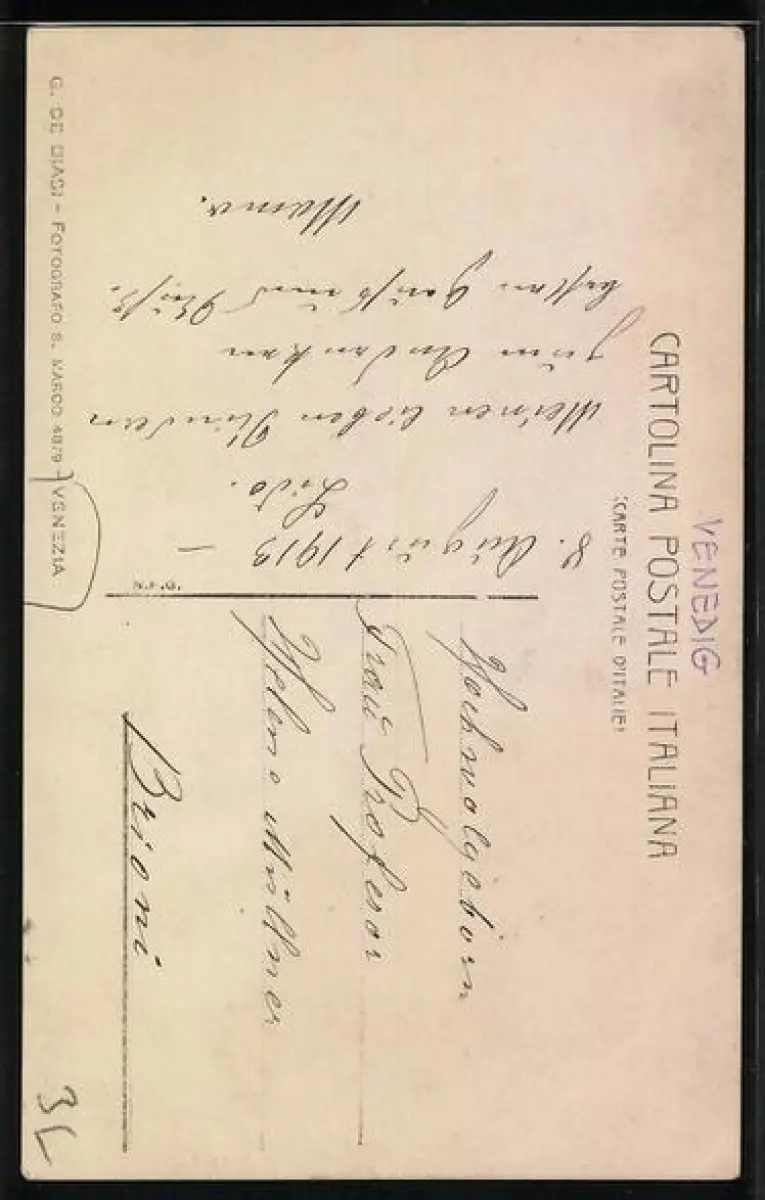 VENEDIG
CARTOLINA POSTALE ITALIANA
(CARTE POSTALE D'ITALIE)
8. August 1913 –
Lido.
Meinen lieben Kindern
zum Andenken
besten Gruß und Kuß.
Mama.
N.P.G.
Hochwolgeborn
Frau Profesor
Helene Müllner
Brioni
G. DE BIASI - FOTOGRAFO S. MARCO 4879 - VENEZIA